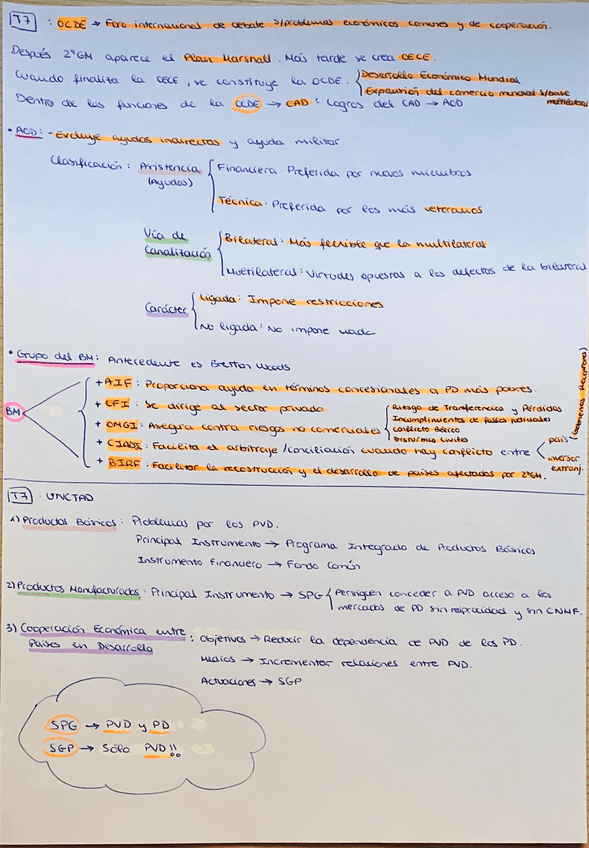 T7 : OCDE → Foro internacional de debate s/problemas económicos comunes y de cooperación.
Después 2ªGM aparece el Plan Marshall. Más tarde se crea OECE.
Cuando finaliza la OECE, se constituye la OCDE. { Desarrollo Económico Mundial
Expansión del comercio mundial s/base multilateral
Dentro de las funciones de la OCDE → CAD : Logros del CAD → AOD
• AOD: - Excluye ayudas indirectas y ayuda militar
Clasificación : Asistencia (Ayudas) { Financiera : Preferida por nuevos miembros
Técnica : Preferida por los más veteranos
Vía de Canalización { Bilateral : Más flexible que la multilateral
Multilateral : Virtudes opuestas a los defectos de la bilateral
Carácter { Ligada : Impone restricciones
No ligada : No impone nada
• Grupo del BM : Antecedente es Bretton Woods
BM
+ AIF : Proporciona ayuda en términos concesionales a PD más pobres.
+ CFI : Se dirige al sector privado
+ OMGI : Asegura contra riesgos no comerciales { Riesgo de Transferencias y Pérdidas
Incumplimientos de fallos judiciales
Conflicto Bélico
Disturbios Civiles
+ CIADI : Facilita el arbitraje/conciliación cuando hay conflicto entre < país (Gobiernos Receptores)
inversor extranj.
+ BIRF : Facilitar la recostrucción y el desarrollo de países afectados por 2ªGM.
T7 UNCTAD
1) Productos Básicos : Problemas por los PVD.
Principal Instrumento → Programa Integrado de Productos Básicos
Instrumento Financiero → Fondo Común
2) Productos Manufacturados : Principal Instrumento → SPG { Persiguen conceder a PVD acceso a los
mercados de PD sin reciprocidad y sin CNMF.
3) Cooperación Económica entre Países en Desarrollo : Objetivos → Reducir la dependencia de PVD de los PD.
Medios → Incrementar relaciones entre PVD.
Actuaciones → SGP
SPG → PVD y PD
SGP → Sólo PVD!!